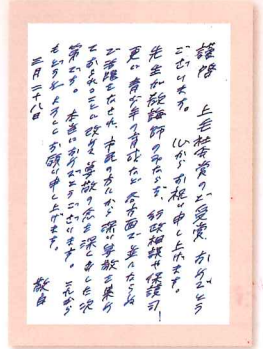 謹啓 上毛社会賞のご受賞 おめでとう
ございます。 心からお祝い申し上げます。
先生が教誨師のみならず、行政相談や保護司、
更に青少年の育成など各方面で並々ならぬ
ご活躍をなされ、市民の方々から深い尊敬を集め
ておられることに改めて尊敬の念を深くしました次
第です。本当におめでとうございます。これから
もどうぞよろしくお願い申し上げます。
月二十八日 敬白